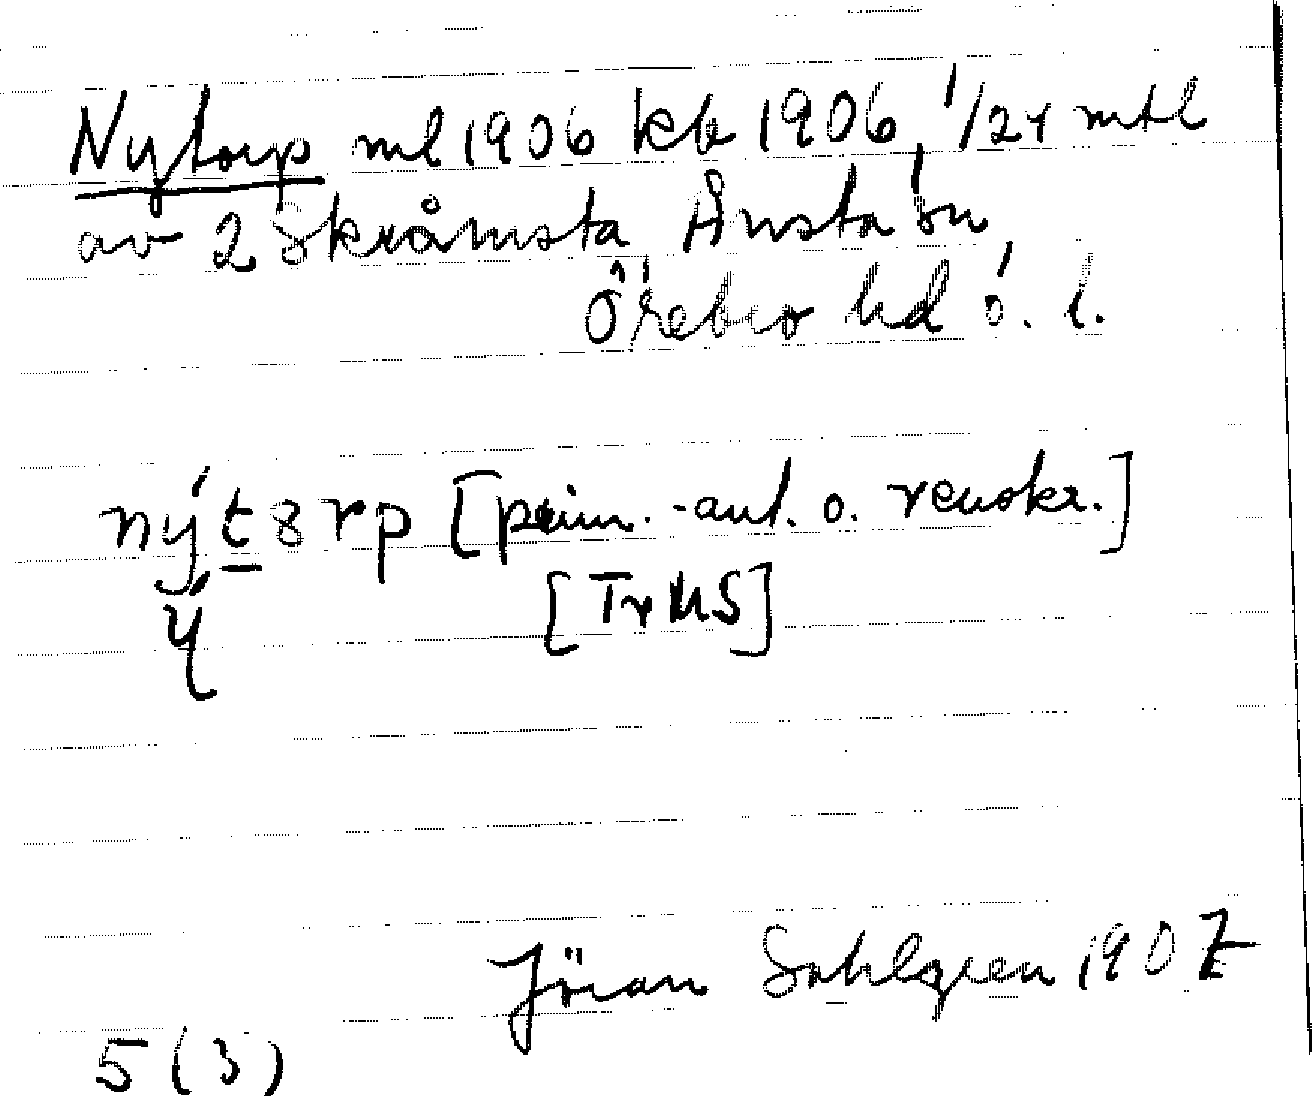 Nytorp ml 1906 kb 1906, 1/24 mtl
av 2 Skråmsta Ånsta sn,
Örebro hd ö. l.
nýt8rp [prim.-ant. o. renskr.]
ý [Tr MS]
Jöran Sahlgren 1907
5 (3)